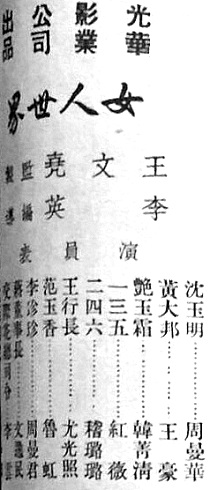 光華影業公司出品
女人世界
王文堯監製
李英編導
演員表
沈玉明………周曼華
黃大邦………王豪
艷玉霜………韓菁清
一三五………紅薇
二四六………稽璐璐
王行長………尤光照
范玉香………魯虹
李珍珍………周曼君
蔣董事長……文逸民